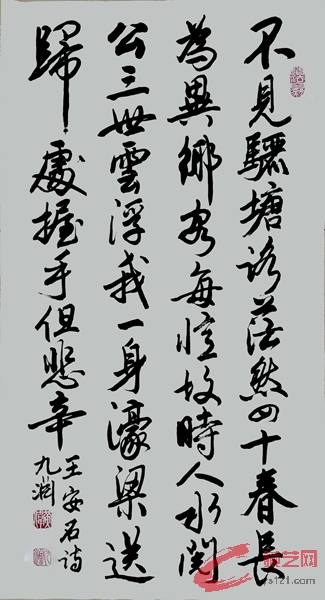 不見驪塘路茫然四十春長
為異鄉客每憶故時人水閱
公三世雲浮我一身濠梁送
歸處握手但悲辛
王安石詩
九
艺网